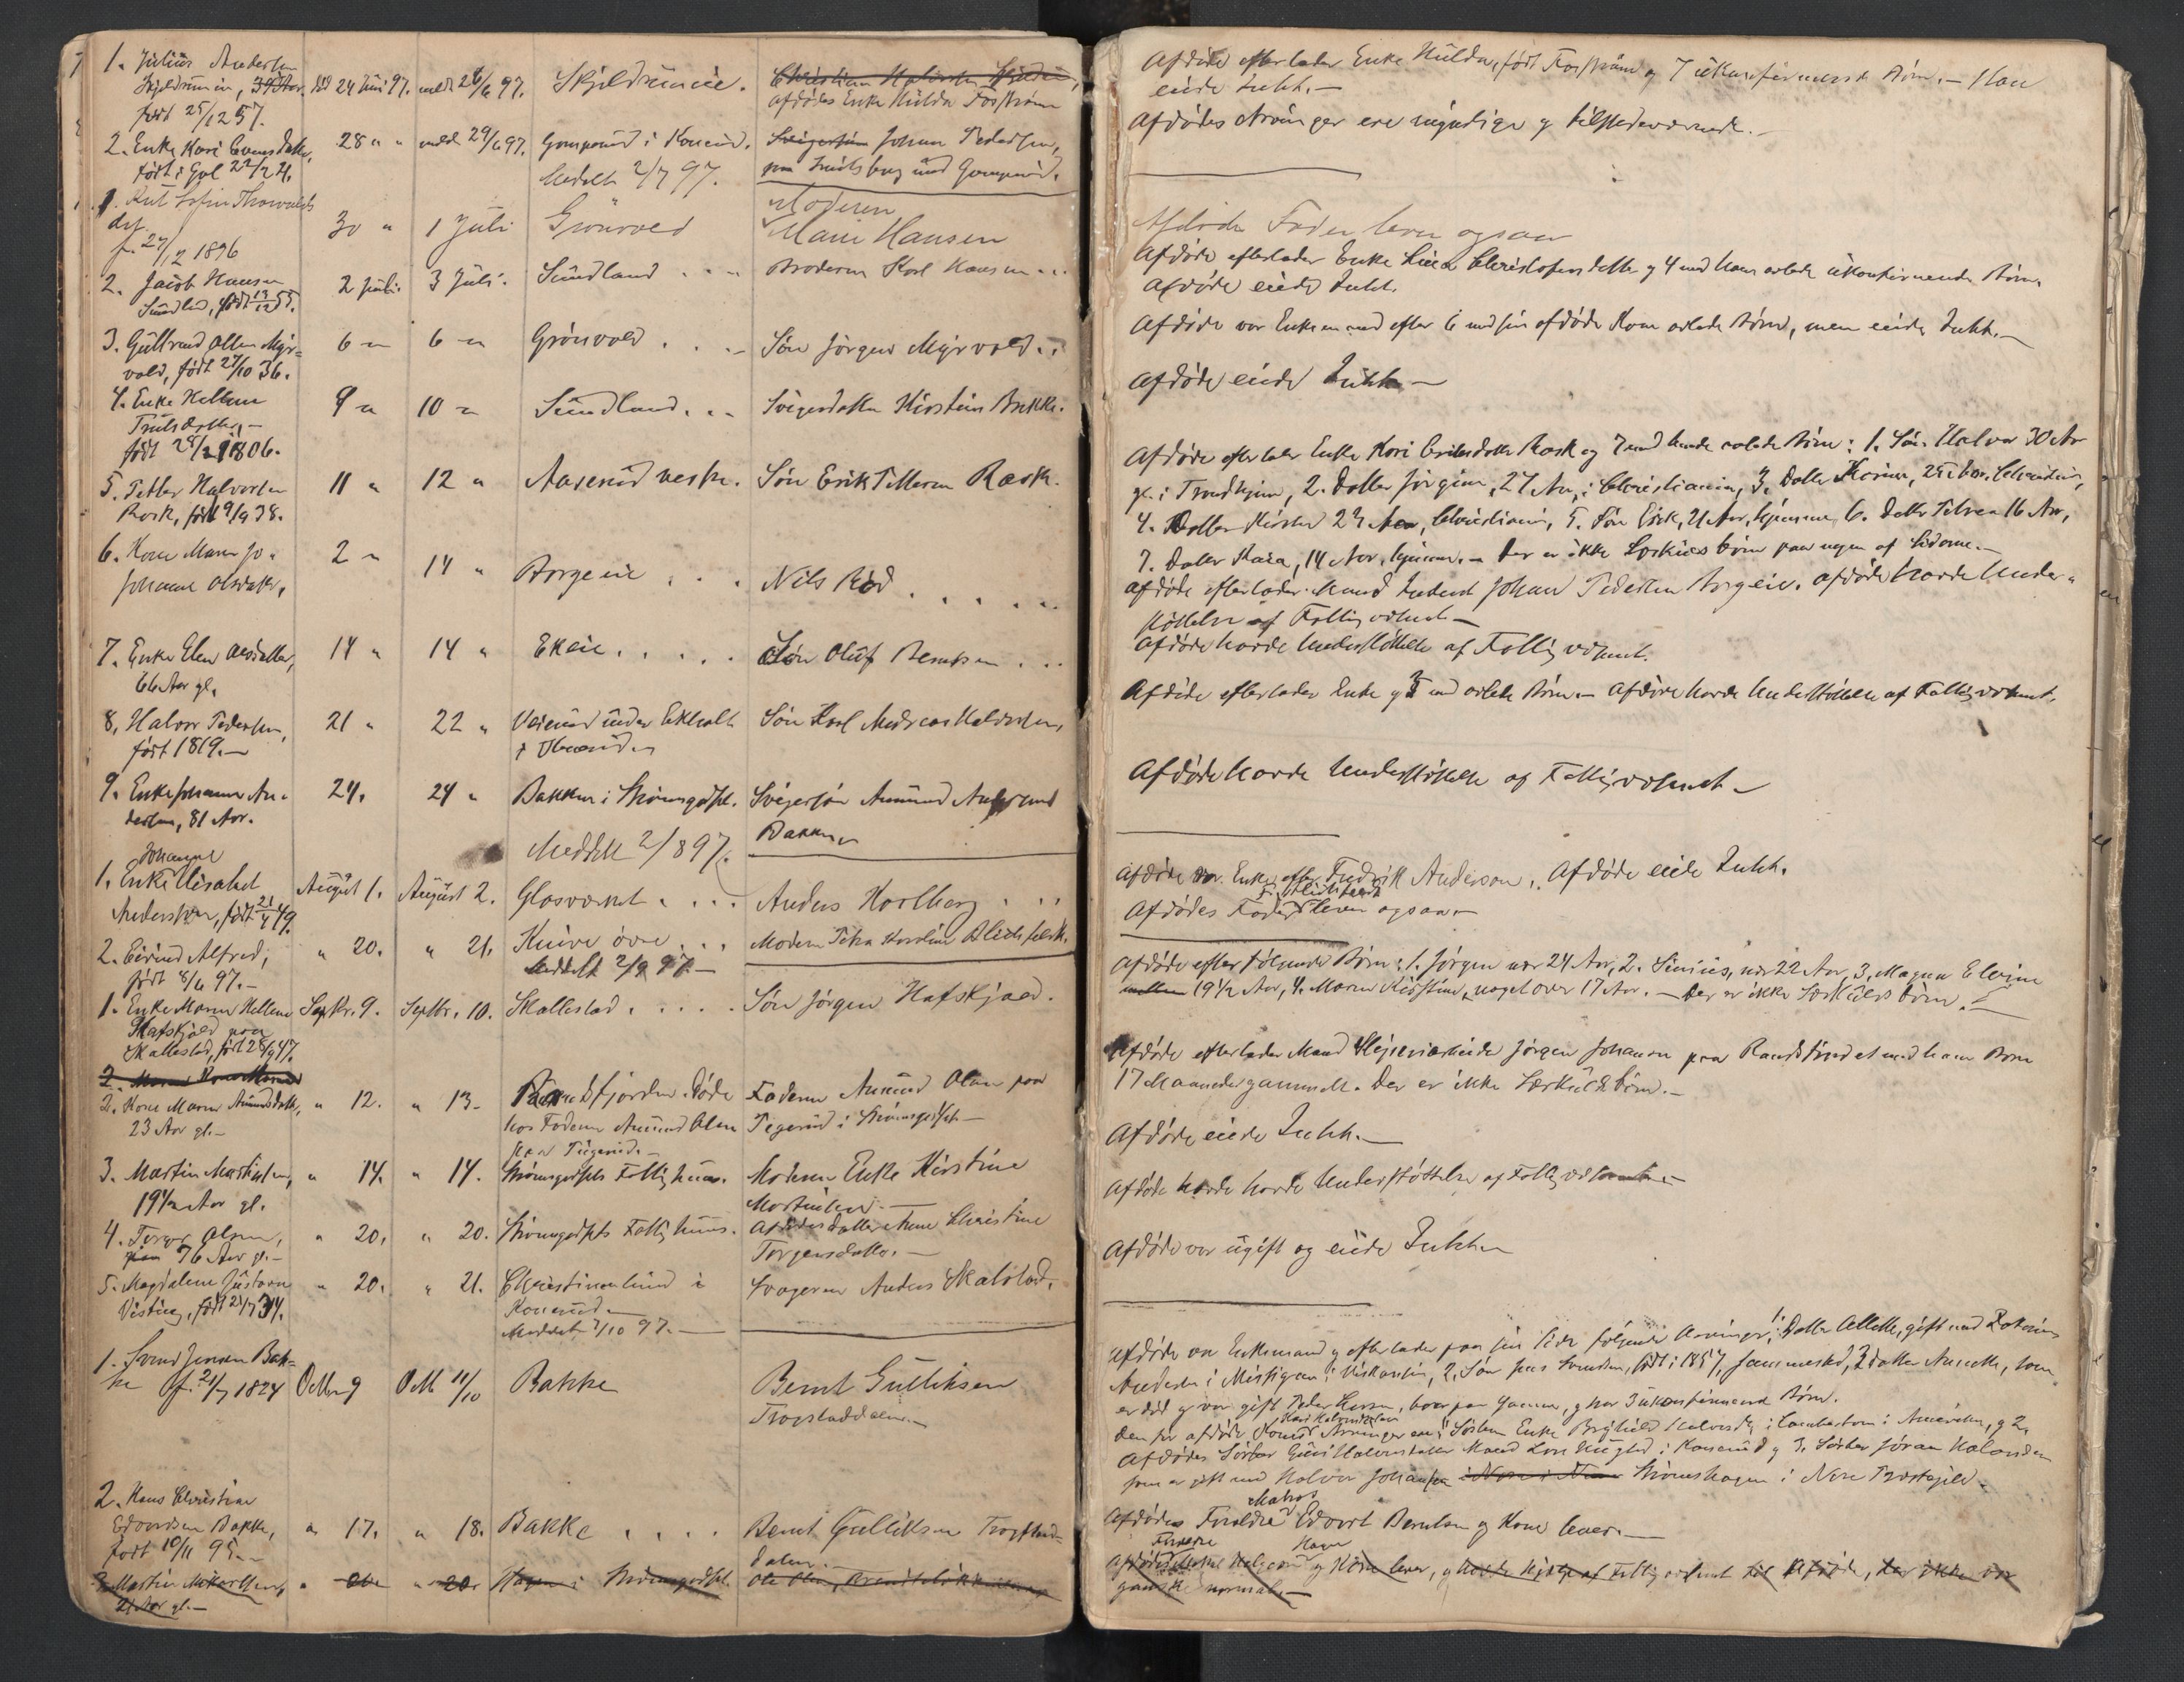 1. Julius Andersen
Skjeldrumeie, 39 Aar.
født 25/12 57.
död 24 Juni 97.
meldt 26/6 97.
Skjeldrumeie.
Christian Halvorsen
Afdödes Enke Hulda Fosstrøm
2. Enke Kari Evensdatter,
født i Gol 22/2 21.
28 " "
meldt 29/6 97.
i Konerud.
Meddelt 2/7 97.
Svigersøn Johan Pedersen,
1. Rut Sofie Thorvalds
dat.
f. 27/12 1896
30 "
1 Juli
Grönvold
Moderen
Marie Hansen
2. Jacob Hansen
Sundland, født 13/12 55.
2 Juli.
3 Juli.
Sundland . . .
Broderen Karl Hansen . . .
3. Gulbrand Olsen Myr=
vold, født 27/10 36.
6 "
6 "
Grönvold . . .
Søn Jörgen Myrvold . .
4. Enke Hellene
Trulsdatter,
født 28/2 1806.
9 "
10 "
Sundland . . .
Svigerdatter Kirstine Bakke.
5. Petter Halvorsen
Rask, født 9/9 38.
11 "
12 "
Aaserud vestre.
Søn Erik Pettersen Rask.
6. Kone Maren Jo=
hanne Olsdatter,
2 "
14 "
Borgeeie . . .
Nils Röd . . . . .
7. Enke Elen Olsdatter,
66 Aar gl.
14 "
14 "
Ekeie . . . . .
Søn Oluf Berntsen . . .
8. Halvor Pedersen,
født 1819.—
21 "
22 "
Veierud under Ekholt
Søn Karl Andreas Halvorsen,
9. Enke Johanne An=
dersen, 81 Aar.
24.
24 "
Bakken i Strömsgodset.
Meddelt 2/8 97.
Svigersøn Amund Amundsen
Bakken
1. Enke Johanne Elisabet
Andersen, født 21/4 49.
August 1.
August 2.
Glasværket . . . .
Anders Karlberg . . .
2. Eivind Alfred,
født 8/6 97.—
" 20.
" 21.
Knive övre . . .
Meddelt 2/9 97.—
Moderen Petra Karoline Blichfeldt.
1. Enke Maren Hellene
Hafskjold paa
Skallestad, født 28/9 47.
Septbr. 9.
Septbr. 10.
Skallestad . . . .
Søn Jörgen Hafskjold.
2. Kone Maren Amundsdatter,
23 Aar gl.—
" 12.
" 13.
Randsfjorden. Döde
hos Faderen Amund Olsen
paa Tegerud.—
Faderen Amund Olsen paa
Tegerud i Strömsgodset—
3. Martin Martinsen,
19 1/2 Aar gl.
" 14.
" 14.
Strömsgodsets Fattighuus.
Moderen Enke Kirstine
Martinsen.—
4. Torger Olsen,
76 Aar gl.—
" 20.
" 20.
Strömsgodsets Fattighuus.
Afdödes Datter Anne Christine
Torgersdatter.—
5. Magdalene Gustava
Visting, født 21/7 34.
" 20.
" 21.
Christianslund i
Konerud.—
Meddelt 2/10 97.—
Svogeren Anders Skalstad.
1. Svend Jensen Bak=
ke f. 21/7 1824
Octbr 9
Octb 11/10
Bakke
Bernt Gulliksen
Tragstaddalen.—
2. Hans Christian
Edvardsen Bakke,
født 10/11 95.—
" 17.
" 18.
Bakke . . . .
Bernt Gulliksen Tragstad=
dalen.—
21 Aar gl.—
" 20.
Hagen i Strömsgodset.
Afdöde efterlader Enke Hulda, født Fosstrøm og 7 ukonfirmerede Börn.— Han
eiede Intet.—
Afdödes Arvinger ere myndige og tilstedeværende.—
Afdödes Fader lever ogsaa
Afdöde efterlader Enke Lina Christofersdatter og 4 med ham avlede ukonfirmerede Börn.
Afdöde eiede Intet.
Afdöde var Enkemand efter 6 med sin afdöde Kone avlede Börn, men eiede Intet.—
Afdöde eiede Intet—
Afdöde efterlader Enke Kari Eriksdatter Rask og 7 med hende avlede Börn: 1. Søn Halvor 30 Aar
gl. i Trondhjem, 2. Datter Jörgine, 27 Aar, i Christiania, 3. Datter Karine, 25 Aar. Christiania,
4. Datter Kirsten 23 Aar, Christiania, 5. Søn Erik, 21 Aar, hjemme, 6. Datter Petrea 16 Aar,
7. Datter Kaia, 14 Aar, hjemme.— Der er ikke Særkuldsbörn paa nogen af Siderne.—
Afdöde efterlader Mand Johan Pedersen Borgeie. Afdöde havde Under=
støttelse af Fattigvæsenet—
Afdöde havde Understøttelse af Fattigvæsenet.
Afdöde efterlader Enke og med avlede Börn.— Afdöde havde Understøttelse af Fattigvæsenet.
Afdöde havde Understøttelse af Fattigvæsenet—
Afdöde var Enke efter Fredrik Anderson. Afdöde eiede Intet.
Afdödes Fader Blichfeldt lever ogsaa—
Afdöde efter følgende Börn: 1. Jörgen nær 24 Aar, 2. Sinius, nær 22 Aar, 3. Magna Elvine
19 1/2 Aar, 4. Maren Kirstine, noget over 17 Aar.— Der er ikke Særkuldsbörn.
Afdöde efterlader Mand Jörgen Johansen paa Randsfjord et med ham Barn
17 Maaneder gammelt. Der er ikke Særkuldsbörn.—
Afdöde eiede Intet.—
Afdöde havde havde Understøttelse af Fattigvæsenet.—
Afdöde var ugift og eiede Intet—
Afdöde var Enkemand og efterlader paa sin Side følgende Arvinger: 1. Datter Allette, gift med Zakarias
Andersen i Missigan i Viskonsin, 2. Søn Jens Svendsen, født i 1857, sammested, 3 Datter Annette, som
er död og var gift Peder Hansen, og har 3 ukonfirmerede Börn.
Den før afdöde Kones Kari Halvorsdatters Arvinger ere: 1. Søster Enke Halvorsdtr. i Amerika, og 2.
Afdödes Søster Halvorsdatter Mand i Konerud og 3. Søster Jöran
som er gift med Halvor Johansen Strömshagen i Nore Præstegjeld.
Afdödes Forældre Matros Edvart Berntsen og Kone lever.—